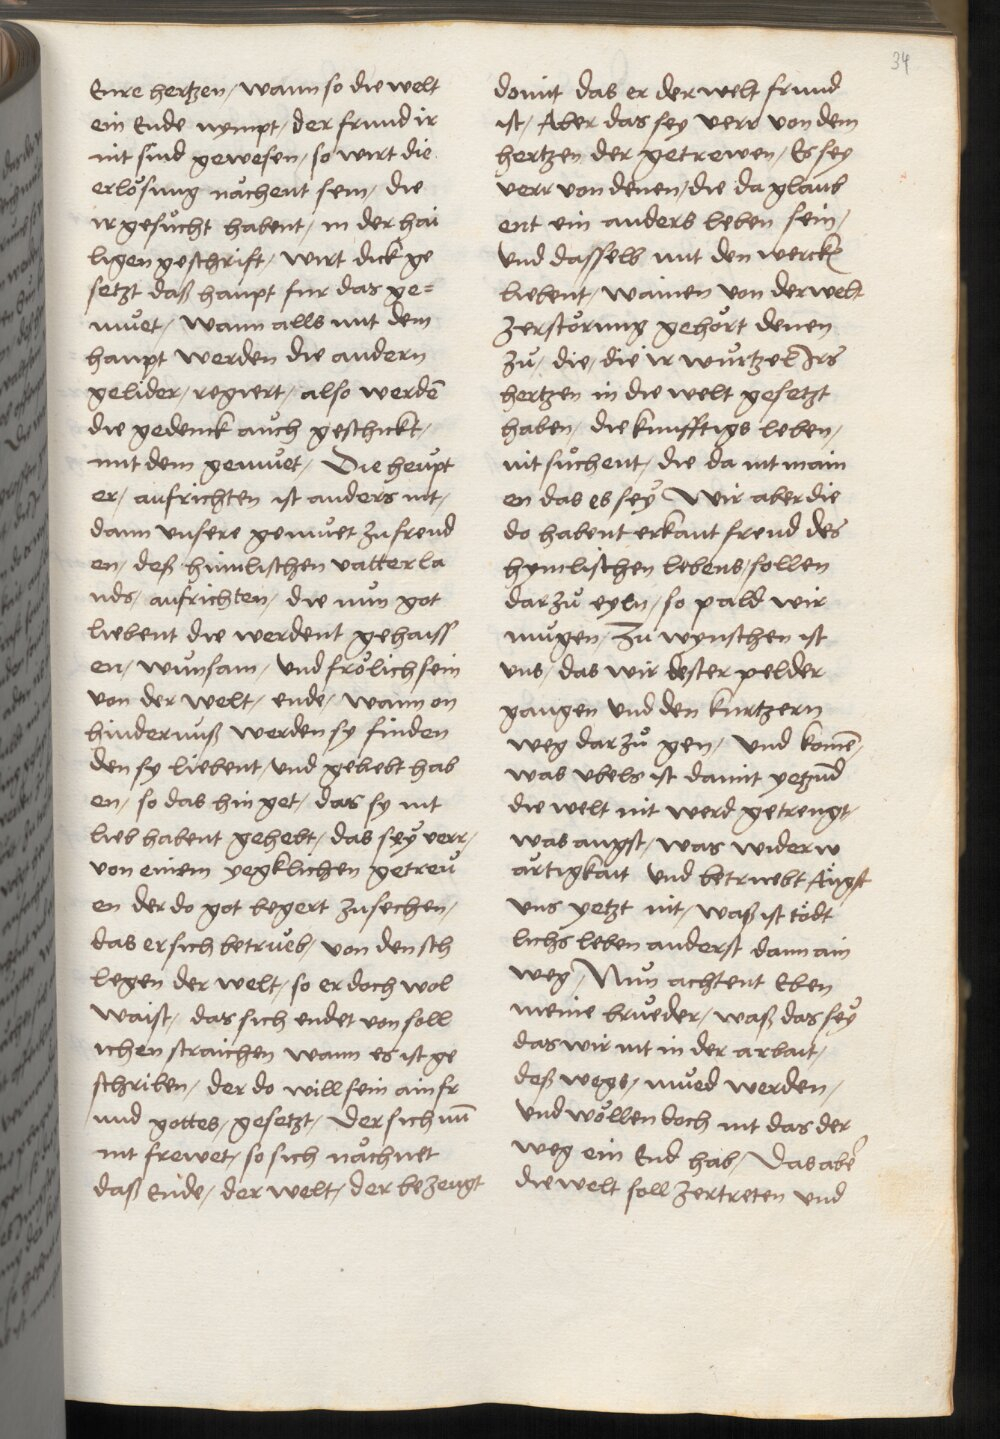 34
Eure hertzen / wann so die welt
ein Ende nympt / der frund ir
nit sind gewesen / so wirt die
erlösung nächent sein / die
ir gesůcht habent / in der hai
ligen geschrift / wirt dick ge
setzt daß haupt fur das ge=
můet / wann alls mit dem
haupt werden die andern
gelider / regiert / also werdē
die gedenck auch geschickt /
mit dem gemůet / Die heupt
er / aufrichten ist anders nit /
dann unsere gemůet zu freud
en / deß himlischen vatterla
nds / aufrichten / die nun got
liebent die werdent gehaiss
en / wunsam / und frölich sein
von der welt / ende / wann on
hindernuß werden sy finden
den sy liebent / und geliebt hab
en / so das hin get / das sy nit
lieb habent gehebt / das sey verr /
von einem yegklichen getreu
en der do got begert zusechen /
das er sich betrueb / von den sch
legen der welt / so er doch wol
waist / das sich endet von soll
ichen straichen wann es ist ge
schriben / der do will sein ain fr
und gottes / gesetzt / der sich nū
nit frewet / so sich nächnet
daß Ende / der welt / der bezeugt
domit das er der welt frund
ist / Aber das sey verr von dem
hertzen der getrewen / Es sey
verr von denen / die da glaub
ent ein anders leben sein /
und dasselb mit den wercken
liebent / wainen von der welt
zerstörung gehört denen
zů / die / die ir wurtzel Irs
hertzen in die welt gesetzt
haben / die kunfftigs leben /
nit sůchent / die da nit main
en das es sey Wir aber die
do habent erkant freud des
hymlischen lebens / sollen
darzů eyln / so pald wir
mugen / Zu wynschen ist
uns / das wir dester pelder
gangen und den kurtzern
weg darzů gen / und komē /
was ubels ist damit yetzund
die welt nit werd getrengt /
was angst / was widerw
ärtigkait und betruebt Ängst
uns yetzt nit / waß ist tödt
lichs leben anderst dann ain
weg / Nun achtent Eben
meine brueder / waß das sey
das wir nit in der arbait /
deß wegs / mued werden /
und wöllen doch nit das der
weg ein End hab / Das aber
die welt soll zertreten und